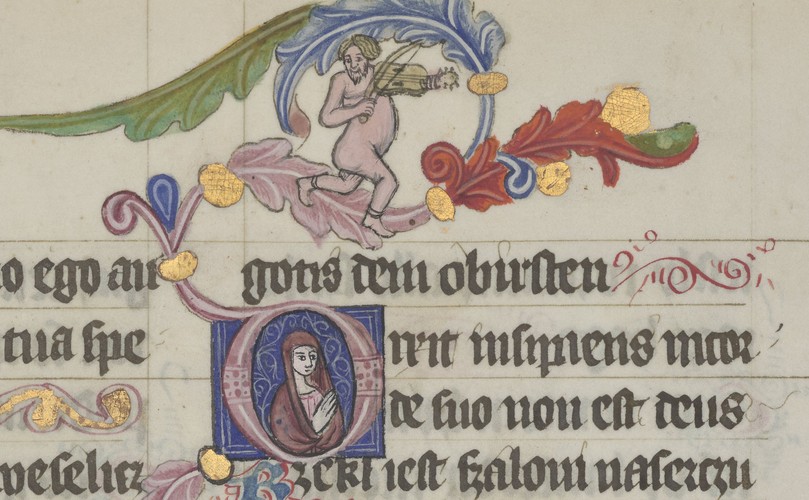 o ego au
tua spe
weselicz
gotis dem obirsten
Dixit insipiens in cor
de suo non est deus
Rzekl iest szaloni naserczu